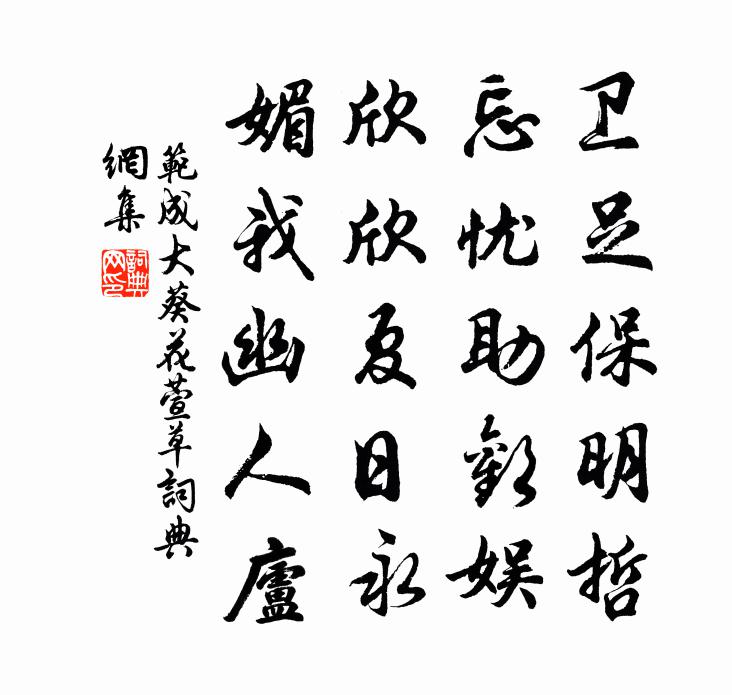 卫足保明哲
忘忧助歡娱
欣欣夏日永
媚我幽人廬
範成大葵花萱草詞典
網集
詞典
网印